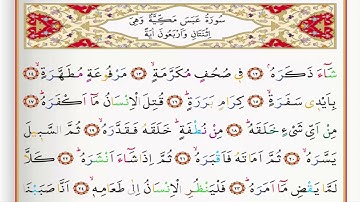 سُورَةُ عَبَسَ مَكِّيَّةٌ وَهِيَ
اثْنَتَانِ وَاَرْبَعُونَ اٰيَةً
شَٓاءَ ذَكَرَهُۢ ﴿١٢﴾ ف۪ي صُحُفٍ مُكَرَّمَةٍۙ ﴿١٣﴾ مَرْفُوعَةٍ مُطَهَّرَةٍۙ ﴿١٤﴾
بِاَيْد۪ي سَفَرَةٍۙ ﴿١٥﴾ كِرَامٍ بَرَرَةٍۜ ﴿١٦﴾ قُتِلَ الْاِنْسَانُ مَٓا اَكْفَرَهُۜ ﴿١٧﴾
مِنْ اَيِّ شَيْءٍ خَلَقَهُۜ ﴿١٨﴾ مِنْ نُطْفَةٍۜ خَلَقَهُ فَقَدَّرَهُۙ ﴿١٩﴾ ثُمَّ السَّب۪يلَ
يَسَّرَهُۙ ﴿٢٠﴾ ثُمَّ اَمَاتَهُ فَاَقْبَرَهُۙ ﴿٢١﴾ ثُمَّ اِذَا شَٓاءَ اَنْشَرَهُۜ ﴿٢٢﴾ كَلَّا
لَمَّا يَقْضِ مَٓا اَمَرَهُۜ ﴿٢٣﴾ فَلْيَنْظُرِ الْاِنْسَانُ اِلٰى طَعَامِه۪ۙ ﴿٢٤﴾ اَنَّا صَبَبْنَا